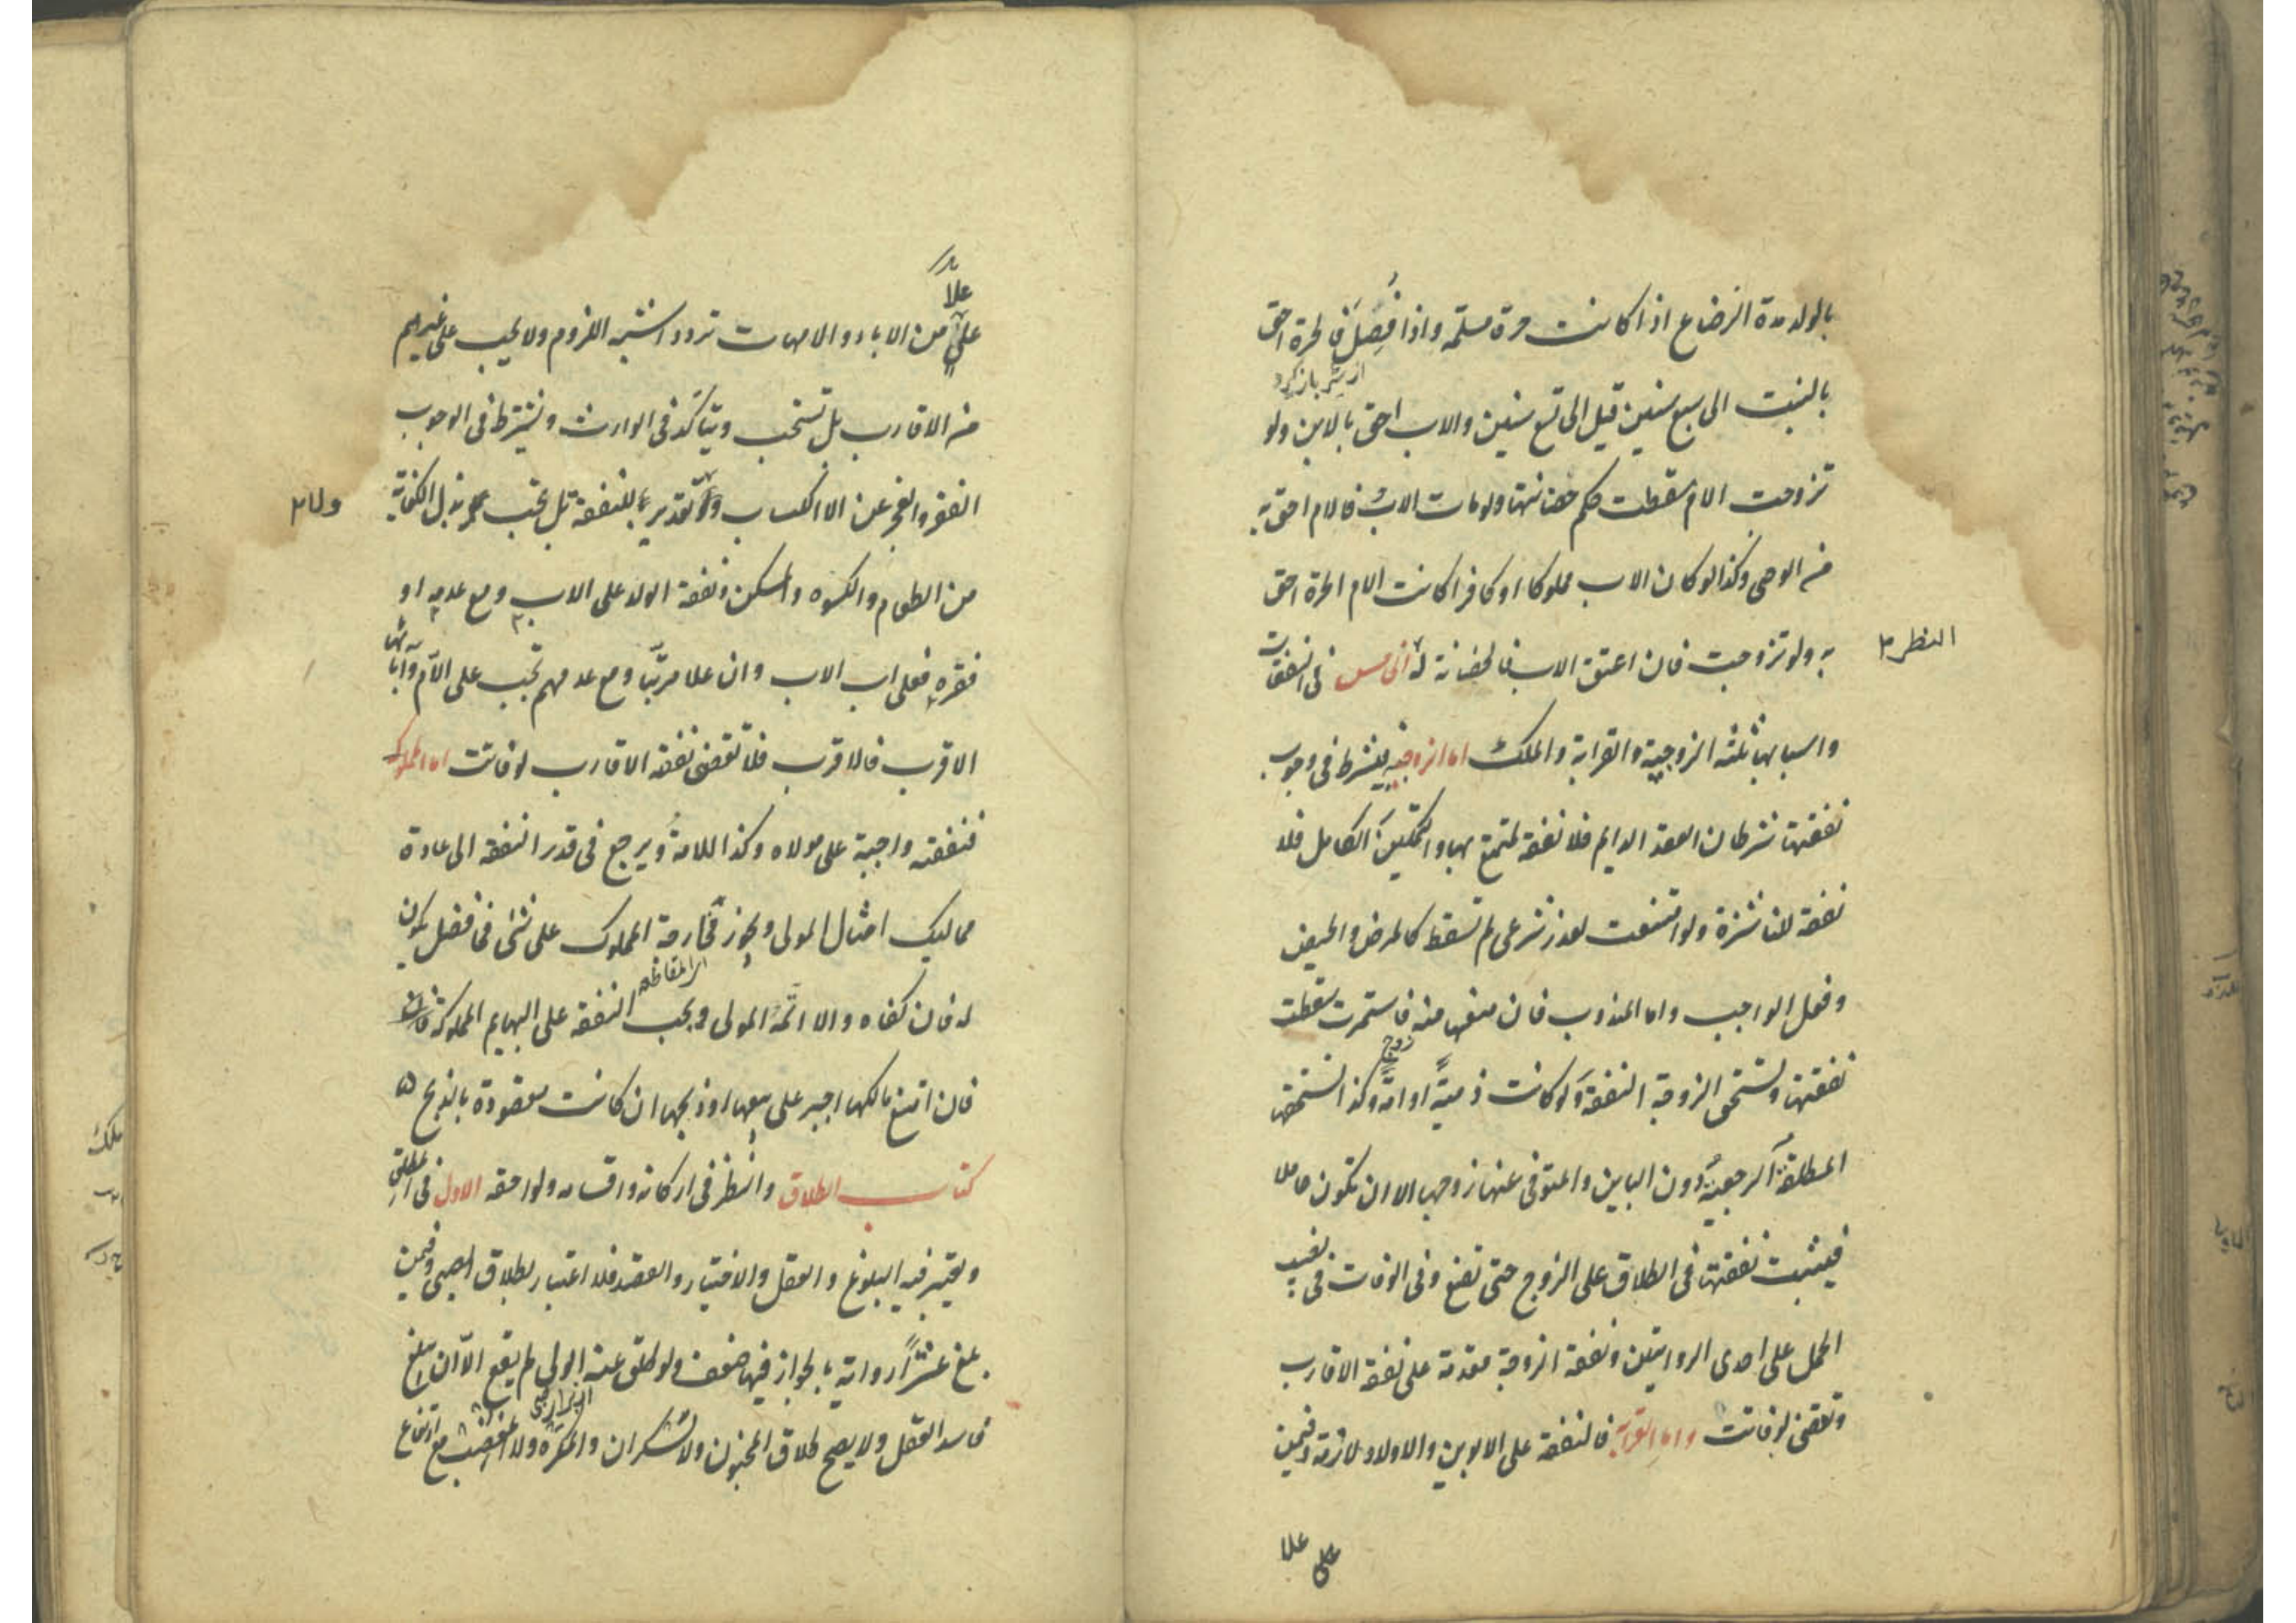 بالولد مدة الرضاع اذا كانت حرة مسلمة واذا فُصِلَ فالحرة احق
از شیر باز کرد
بالبنت الى سبع سنين قيل الى تسع سنين والاب احق بالابن ولو
تزوجت الام سقطت حضانتها ولو مات الاب فالام احق به
من الوصي وكذا لو كان الاب مملوكا او كافرا كانت الام الحرة احق
به ولو تزوجت فان اعتق الاب فالحضانة له الخامس في النفقات
النظر
واسبابها ثلثة الزوجية والقرابة والملك اما الزوجية فيشترط في وجوب
نفقتها شرطان العقد الدايم فلا نفقة لمتمتع بها والتمكين الكامل فلا
نفقة لناشزة ولو امتنعت لعذر شرعي لم تسقط كالمرض والحيض
وفعل الواجب واما المندوب فان منعها منه فاستمرت سقطت
نفقتها وتستحق الزوجة النفقة ولو كانت ذمية او امة وكذا تستحق
المطلقة الرجعية دون الباين والمتوفى عنها زوجها الا ان تكون حاملا
فيثبت نفقتها في الطلاق على الزوج حتى تضع وفي الوفات في نصيب
الحمل على احدى الروايتين ونفقة الزوجة مقدمة على نفقة الاقارب
وتقضى لو فاتت واما القرابة فالنفقة على الابوين والاولاد لازمة وفيمن
على علا
علا
من الاباء والامهات تردد اشبهه اللزوم ولا يجب على غيرهم
من الاقارب بل تستحب ويتاكد في الوارث ويشترط في الوجوب
الفقر والعجز عن الاكتساب ولا تقدير للنفقة بل يجب بذل الكفاية
من الطعام والكسوه والمسكن ونفقة الولد على الاب ومع عدمه او
فقره فعلى اب الاب وان علا مرتبا ومع عدمهم تجب على الام وآبائها
الاقرب فالاقرب فلا تقضى نفقة الاقارب لو فاتت اما المملوك
فنفقته واجبة على مولاه وكذا الامة ويرجع في قدر النفقة الى عادة
مماليك امثال المولى ويجوز مخارجة المملوك على شئ فما فضل يكون
له فان كفاه والا اتمه المولى ويجب النفقة على البهايم المملوكة
فان امتنع مالكها اجبر على بيعها او ذبحها ان كانت مقصودة بالذبح
كتاب الطلاق والنظر في اركانه واقسامه ولواحقه الاول في المطلق
ويعتبر فيه البلوغ والعقل والاختيار والقصد فلا اعتبار بطلاق الصبي وفيمن
بلغ عشرا رواية بالجواز فيها ضعف ولو طلق عنه الولي لم يقع الا ان يبلغ
فاسد العقل ولا يصح طلاق المجنون ولا السكران والمكره ولا المغضب مع ارتفاع